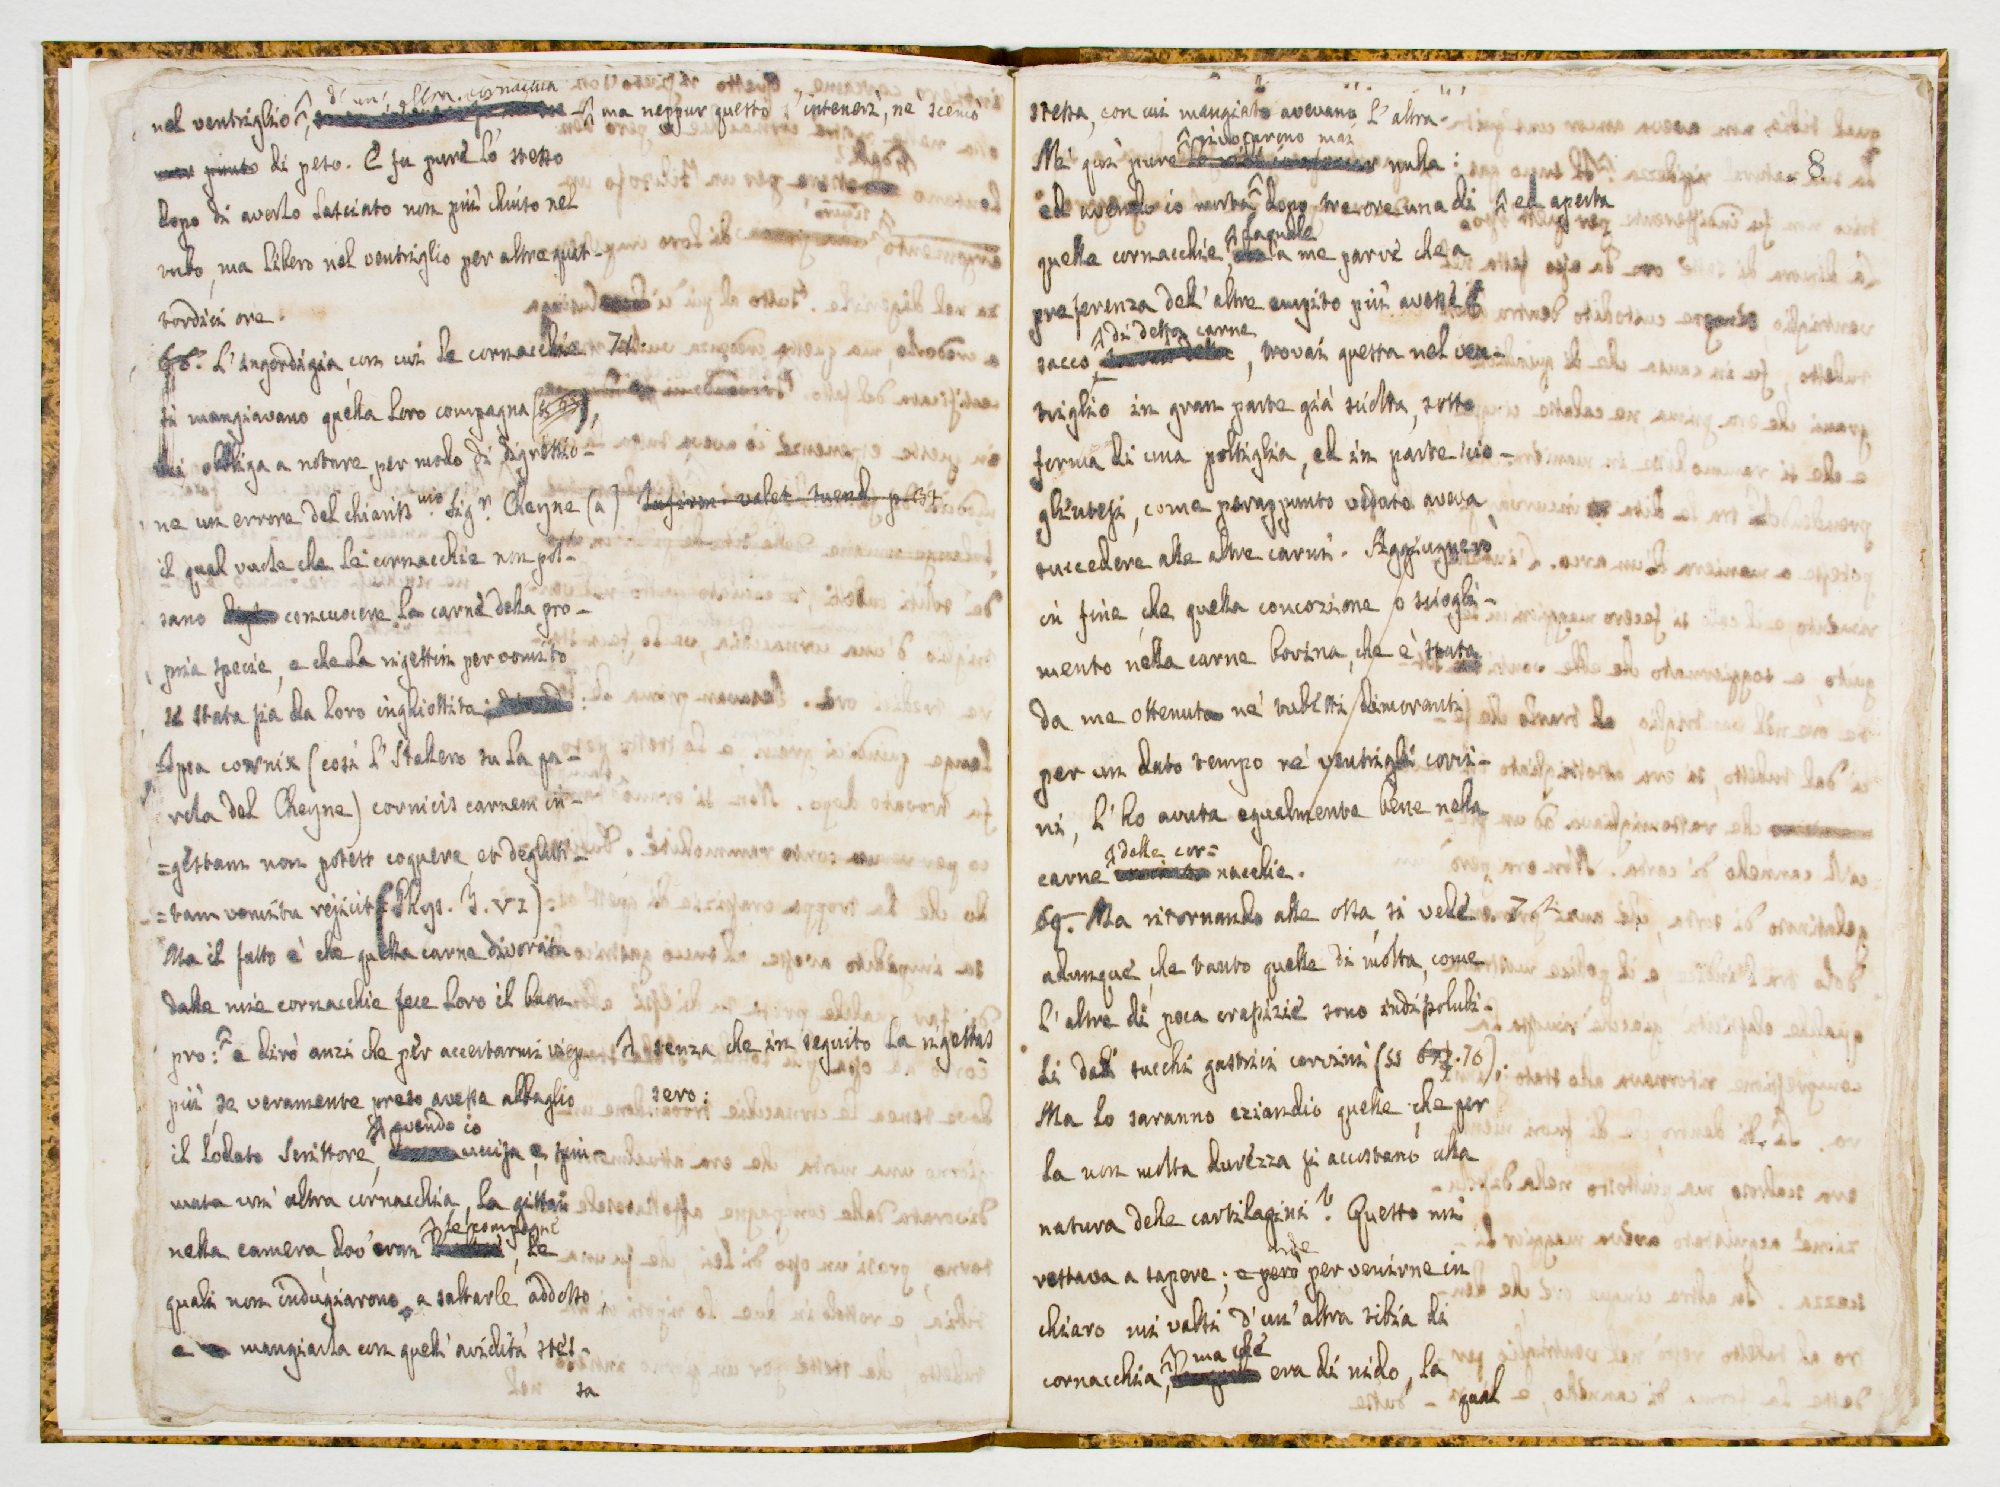 di un' altra cornacchia
nel ventriglio ^, ^ ma neppur questo s'intenerì, nè scemò
punto di peso. E fu pure lo stesso
dopo di averlo lasciato non più chiuso nel
tubo, ma libero nel ventriglio per altre quat-
tordici ore.
68. L'ingordigia, con cui le cornacchie 74.
si mangiavano quella loro compagna
mi obbliga a notare per modo di digressio-
ne un errore del chiariss.mo Sig.r Cheyne (a)
il qual vuole che le cornacchie non pos-
sano concuocere la carne della pro-
pria specie, e che la rigettin per vomito
se stata sia da loro inghiottita:
Ipsa cornix (così l'Hallero su la pa-
rola del Cheyne) cornicis carnem in-
=gestam non potest coquere, et degluti-
=tam vomitu rejicit (Phys. T. VI).
Ma il fatto è che quella carne divorata
dalle mie cornacchie fece loro il buon
pro: ^ e dirò anzi che per accertarmi viep ^ senza che in seguito la rigettas
più se veramente preso avesse abbaglio sero:
^ avendo io
il lodato Scrittore, uccisa, e spiu-
mata un' altra cornacchia, la gittai
^ le compagne
nella camera, dov'eran , le
quali non indugiarono a saltarle addosso
e mangiarla con quell'avidità stes-
sa
8
stessa, con cui mangiato avevano l'altra.
^ rivocarono mai
Nè qui pure nulla:
ed avendo io morta ^ dopo tre ore una di ^ ed aperta
^ laquale
quelle cornacchie, a me parve che a
preferenza dell'altre empito più avesse il
^ di detta carne
sacco , trovai questa nel ven-
triglio in gran parte già sciolta, sotto
forma di una poltiglia, ed in parte scio-
gliutesi, come perappunto veduto aveva
succedere alle altre carni. Aggiugnerò
in fine, che quella concozione o sciogli-
mento nella carne bovina, che è stata
da me ottenuto ne' tubetti dimoranti
per un dato tempo ne' ventrigli corvi-
ni, l'ho avuta egualmente bene nella
^ delle cor=
carne nacchie.
69. Ma ritornando alle ossa, si vede 75.
adunque, che tanto quelle di molta, come
l'altre di poca crassizie sono indissolubi-
li dai succhi gastrici corvini (ss 70).
Ma lo saranno eziandio quelle, che per
la non molta durezza si accostano alla
natura delle cartilagini? Questo mi
restava a sapere; e però per venirne in
chiaro mi valsi d'un'altra tibia di
^ ma che
cornacchia, era di nido, la
qual